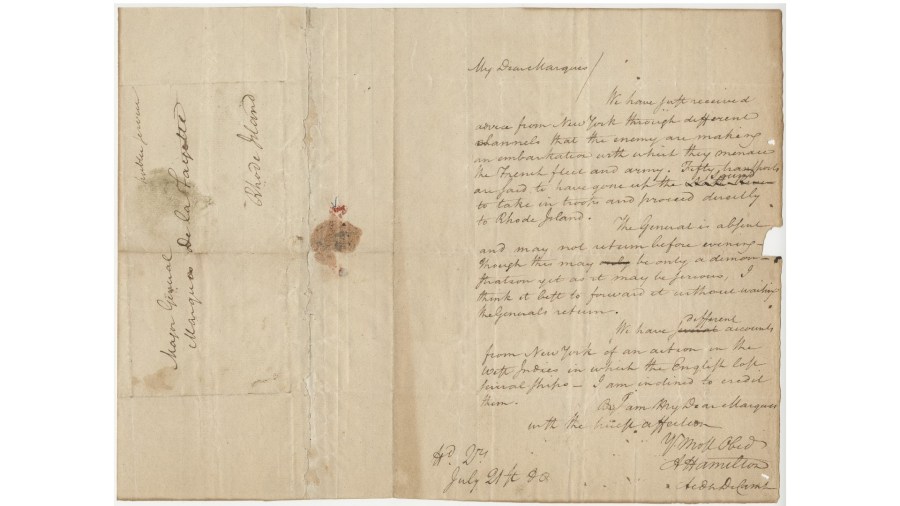 My Dear Marquis /
We have just received
advice from New York through different
channels that the enemy are making
an embarkation with which they menace
the French fleet and army. Fifty transports
are said to have gone up the Sound
to take in troops and proceed directly
to Rhode Island.
The General is absent
and may not return before evening –
Though this may only be only a demon–
stration yet as it may be serious, I
think it best to forward it without waiting
the Generals return.
We have different accounts
from New York of an action in the
West Indies in which the English lost
several ships – I am inclined to credit
them.
I am My Dear Marquis
with the truest affection
Yr. Most Obed
A Hamilton
Aide De Camp
Hd. Qrs.
July 21st 80
Major General
Marquis de la Fayette
Rhode Island
public service